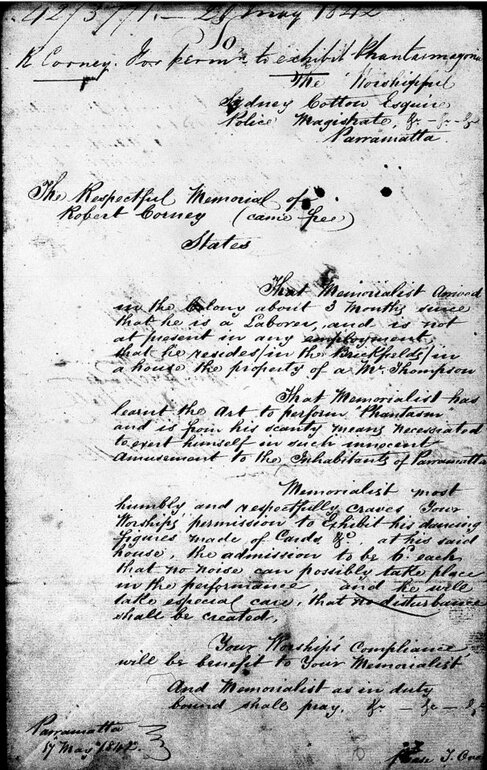 May 1842
To
R Corney. For permn. to exhibit Phantasmagoria
The Worshipful
Sydney Cotton Esquire
Police Magistrate, &c - &c - &c
Parramatta
The Respectful Memorial of
Robert Corney (came free)
States
That Memorialist Arrived
in the Colony about 3 Months since
that he is a Laborer, and is not
at present in any employment,
that he resides in the Brickfields in
a house the property of a Mr. Thompson
That Memorialist has
learnt the Art to perform "Phantasm"
and is from his scanty means necessiated
to exert himself in such innocent
Amusement to the Inhabitants of Parramatta
Memorialist most
humbly and respectfully craves Your
Worships' permission to Exhibit his dancing
figures made of Cards &c. at his said
house, the admission to be 6d. each,
that no noise can possibly take place
in the performance, and he will
take especial care, that no disturbance
shall be created,
Your Worship's Compliance
will be benefit to Your Memorialist
And Memorialist as in duty
bound shall pray. &c - &c - &c
Parramatta
17 May 1842.
please T. Ove